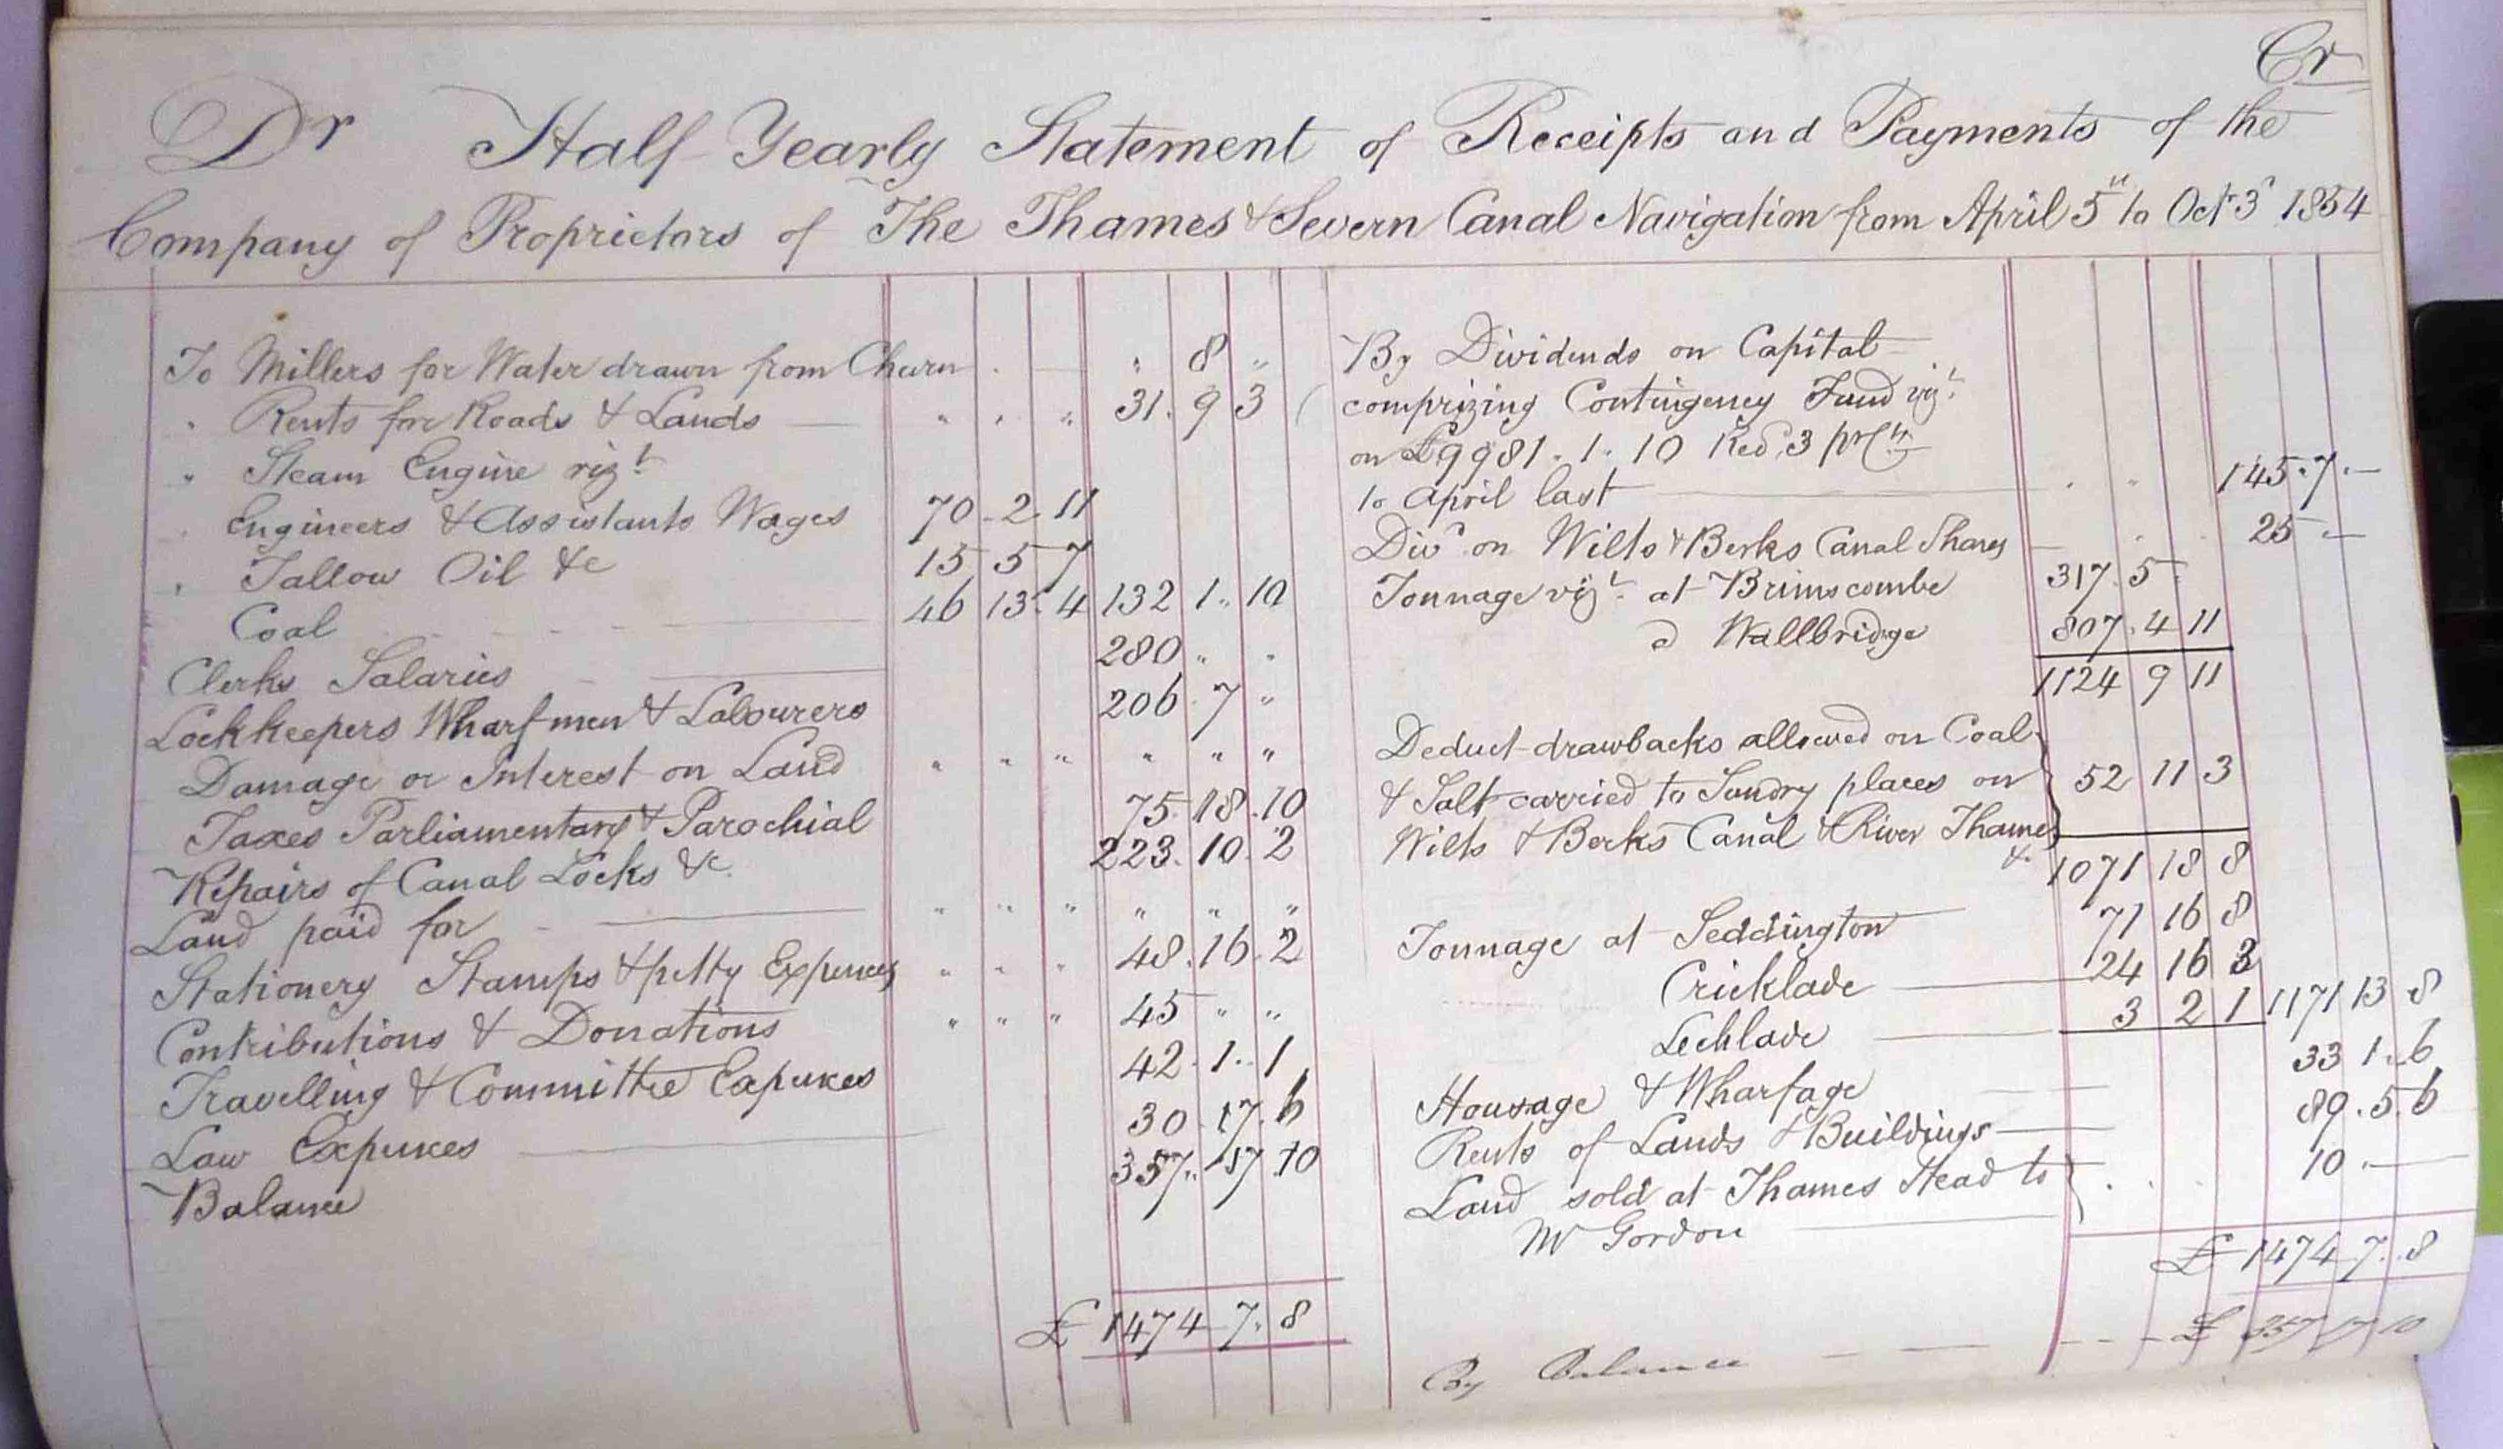 Cr
Dr Half Yearly Statement of Receipts and Payments of the
Company of Proprietors of The Thames & Severn Canal Navigation from April 5th to Octr 3d 1854
To Millers for Water drawn from Churn . " 8 "
" Rents for Roads & Lands " " " 31. 9 3
" Steam Engine vizt
" Engineers & Assistants Wages 70 - 2. 11
" Tallow Oil &c 15 5 7
Coal 46 13. 4 132 1.. 10
Clerks Salaries 280 " "
Lockkeepers Wharfmen & Labourers 206. 7 "
Damage or Interest on Land " " " " " "
Taxes Parliamentary & Parochial 75. 18. 10
Repairs of Canal Locks &c 223. 10. 2
Land paid for " " " " " "
Stationery Stamps & petty Expences " " " 48. 16. 2
Contributions & Donations " " " 45 " "
Travelling & Committee Expences 42. 1.. 1
Law Expences 30. 17. 6
Balance 357.. 17 10
£ 1474 7. 8
By Dividends on Capital
comprizing Contingency Fund vizt
on £9981. 1. 10 Red. 3 pr Ct
to April last 145. 7. —
Divd on Wilts & Berks Canal Shares 25 —
Tonnage vizt at Brimscombe 317. 5
d Wallbridge 807. 4 11
1124 9 11
Deduct drawbacks allowed on Coal
& Salt carried to Sundry places on 52 11 3
Wilts & Berks Canal & River Thames
&c 1071 18 8
Tonnage at Seddington 71 16 8
Cricklade 24 16 3
Lechlade 3 2 1 1171 13 8
Housage & Wharfage 33 1. 6
Rents of Lands & Buildings 89. 5. 6
Land sold at Thames Head to 10. —
Mr Gordon
£ 1474 7. 8
By Balance £ 357 17 10